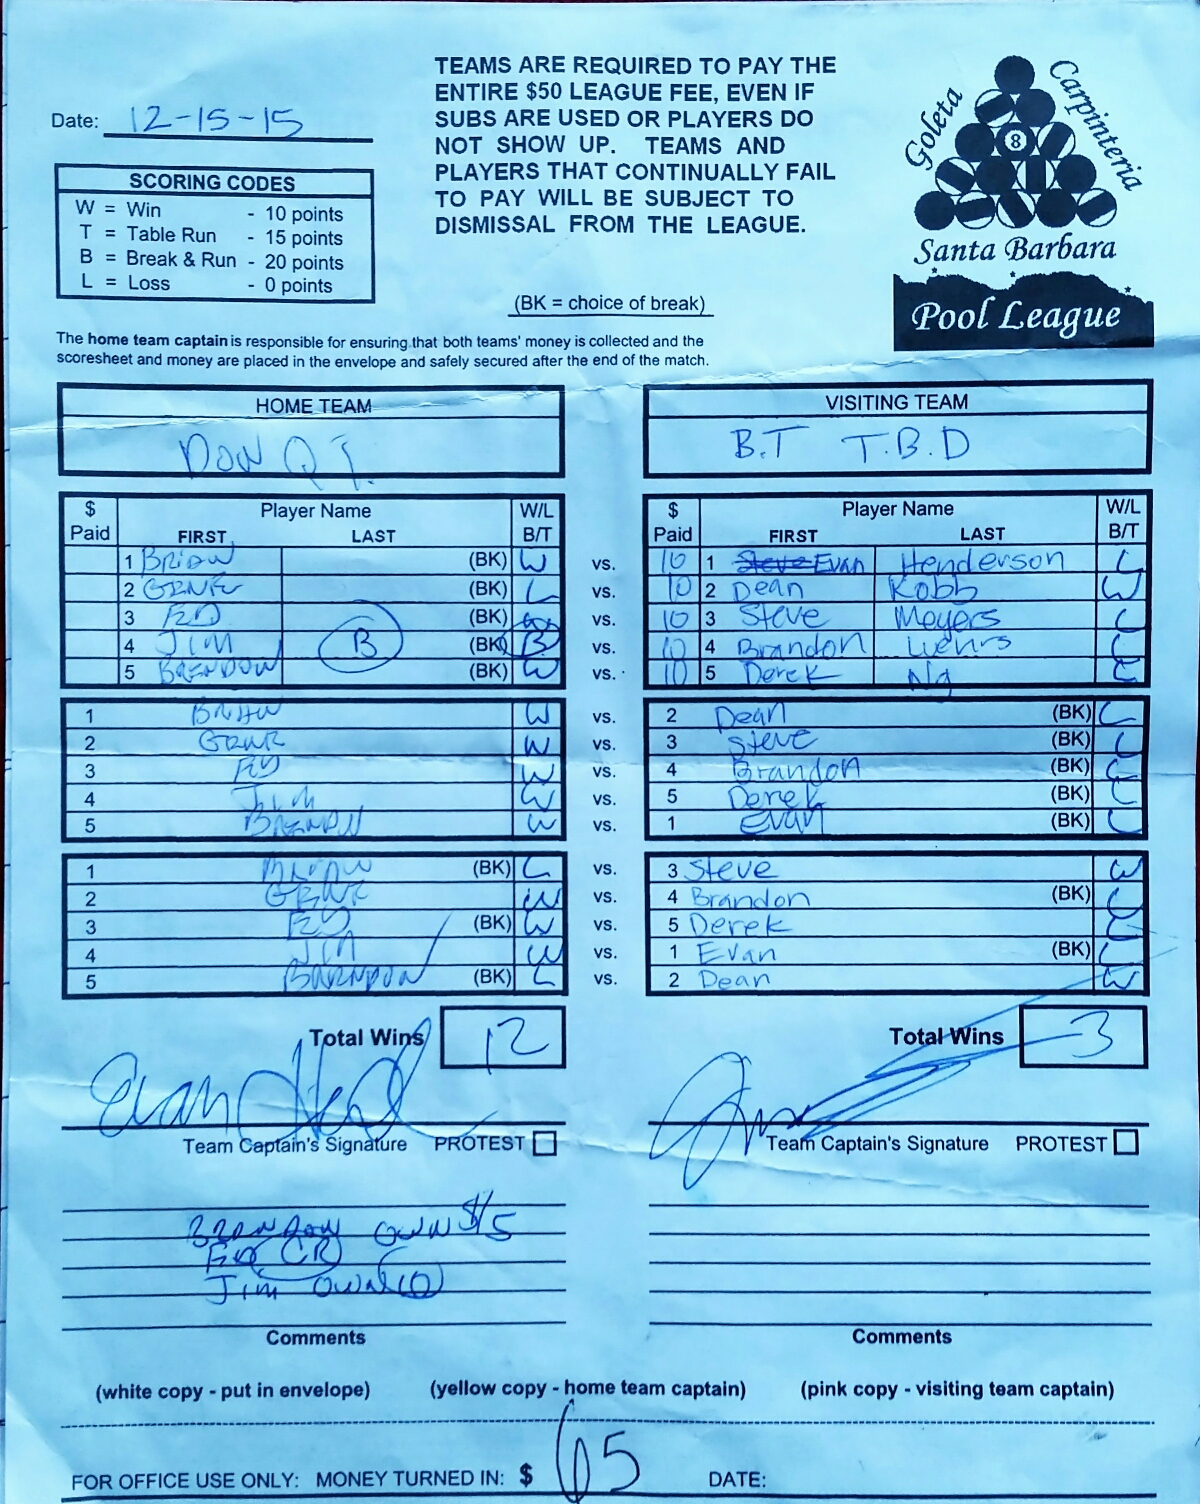 TEAMS ARE REQUIRED TO PAY THE
ENTIRE $50 LEAGUE FEE, EVEN IF
SUBS ARE USED OR PLAYERS DO
NOT SHOW UP. TEAMS AND
PLAYERS THAT CONTINUALLY FAIL
TO PAY WILL BE SUBJECT TO
DISMISSAL FROM THE LEAGUE.
Goleta
Carpinteria
8
Santa Barbara
Pool League
Date: 12-15-15
SCORING CODES
W = Win - 10 points
T = Table Run - 15 points
B = Break & Run - 20 points
L = Loss - 0 points
(BK = choice of break)
The home team captain is responsible for ensuring that both teams' money is collected and the
scoresheet and money are placed in the envelope and safely secured after the end of the match.
HOME TEAM VISITING TEAM
DON Q B.T T.B.D
$ Paid Player Name FIRST LAST W/L B/T $ Paid Player Name FIRST LAST W/L B/T
1 BRIAN (BK) W vs. 10 1 Steve Evan Henderson L
2 GENE (BK) L vs. 10 2 Dean Kobb W
3 ED (BK) vs. 10 3 Steve Meyers L
4 JIM B (BK) B vs. 10 4 Brandon L
5 BRENDON (BK) W vs. 10 5 Derek Ng L
1 BRIAN W vs. 2 Dean (BK) L
2 W vs. 3 Steve (BK) L
3 ED W vs. 4 Brandon (BK) L
4 Jim W vs. 5 Derek (BK) L
5 W vs. 1 Evan (BK) L
1 BRIAN (BK) L vs. 3 Steve W
2 W vs. 4 Brandon (BK) L
3 ED (BK) W vs. 5 Derek L
4 JIM W vs. 1 Evan (BK) L
5 (BK) L vs. 2 Dean W
Total Wins 12 Total Wins 3
Evan
Team Captain's Signature PROTEST Team Captain's Signature PROTEST
BRENDON OWN $15
ED CR
Jim OWN
Comments Comments
(white copy - put in envelope) (yellow copy - home team captain) (pink copy - visiting team captain)
FOR OFFICE USE ONLY: MONEY TURNED IN: $ 65 DATE: